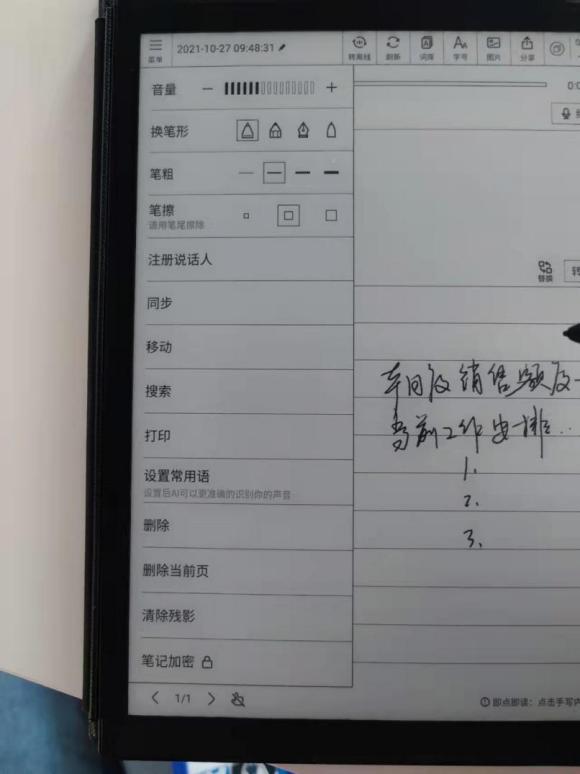 菜单
2021-10-27 09:48:31
转离线
刷新
词库
字号
图片
分享
音量 − +
0:0
换笔形
笔粗
笔擦
请用笔尾擦除
注册说话人
替换
转
同步
移动
搜索
打印
设置常用语
设置后AI可以更准确的识别你的声音
删除
删除当前页
清除残影
笔记加密
车间及销售额及一
当前工作安排..
1.
2.
3.
1/1
即点即读：点击手写内